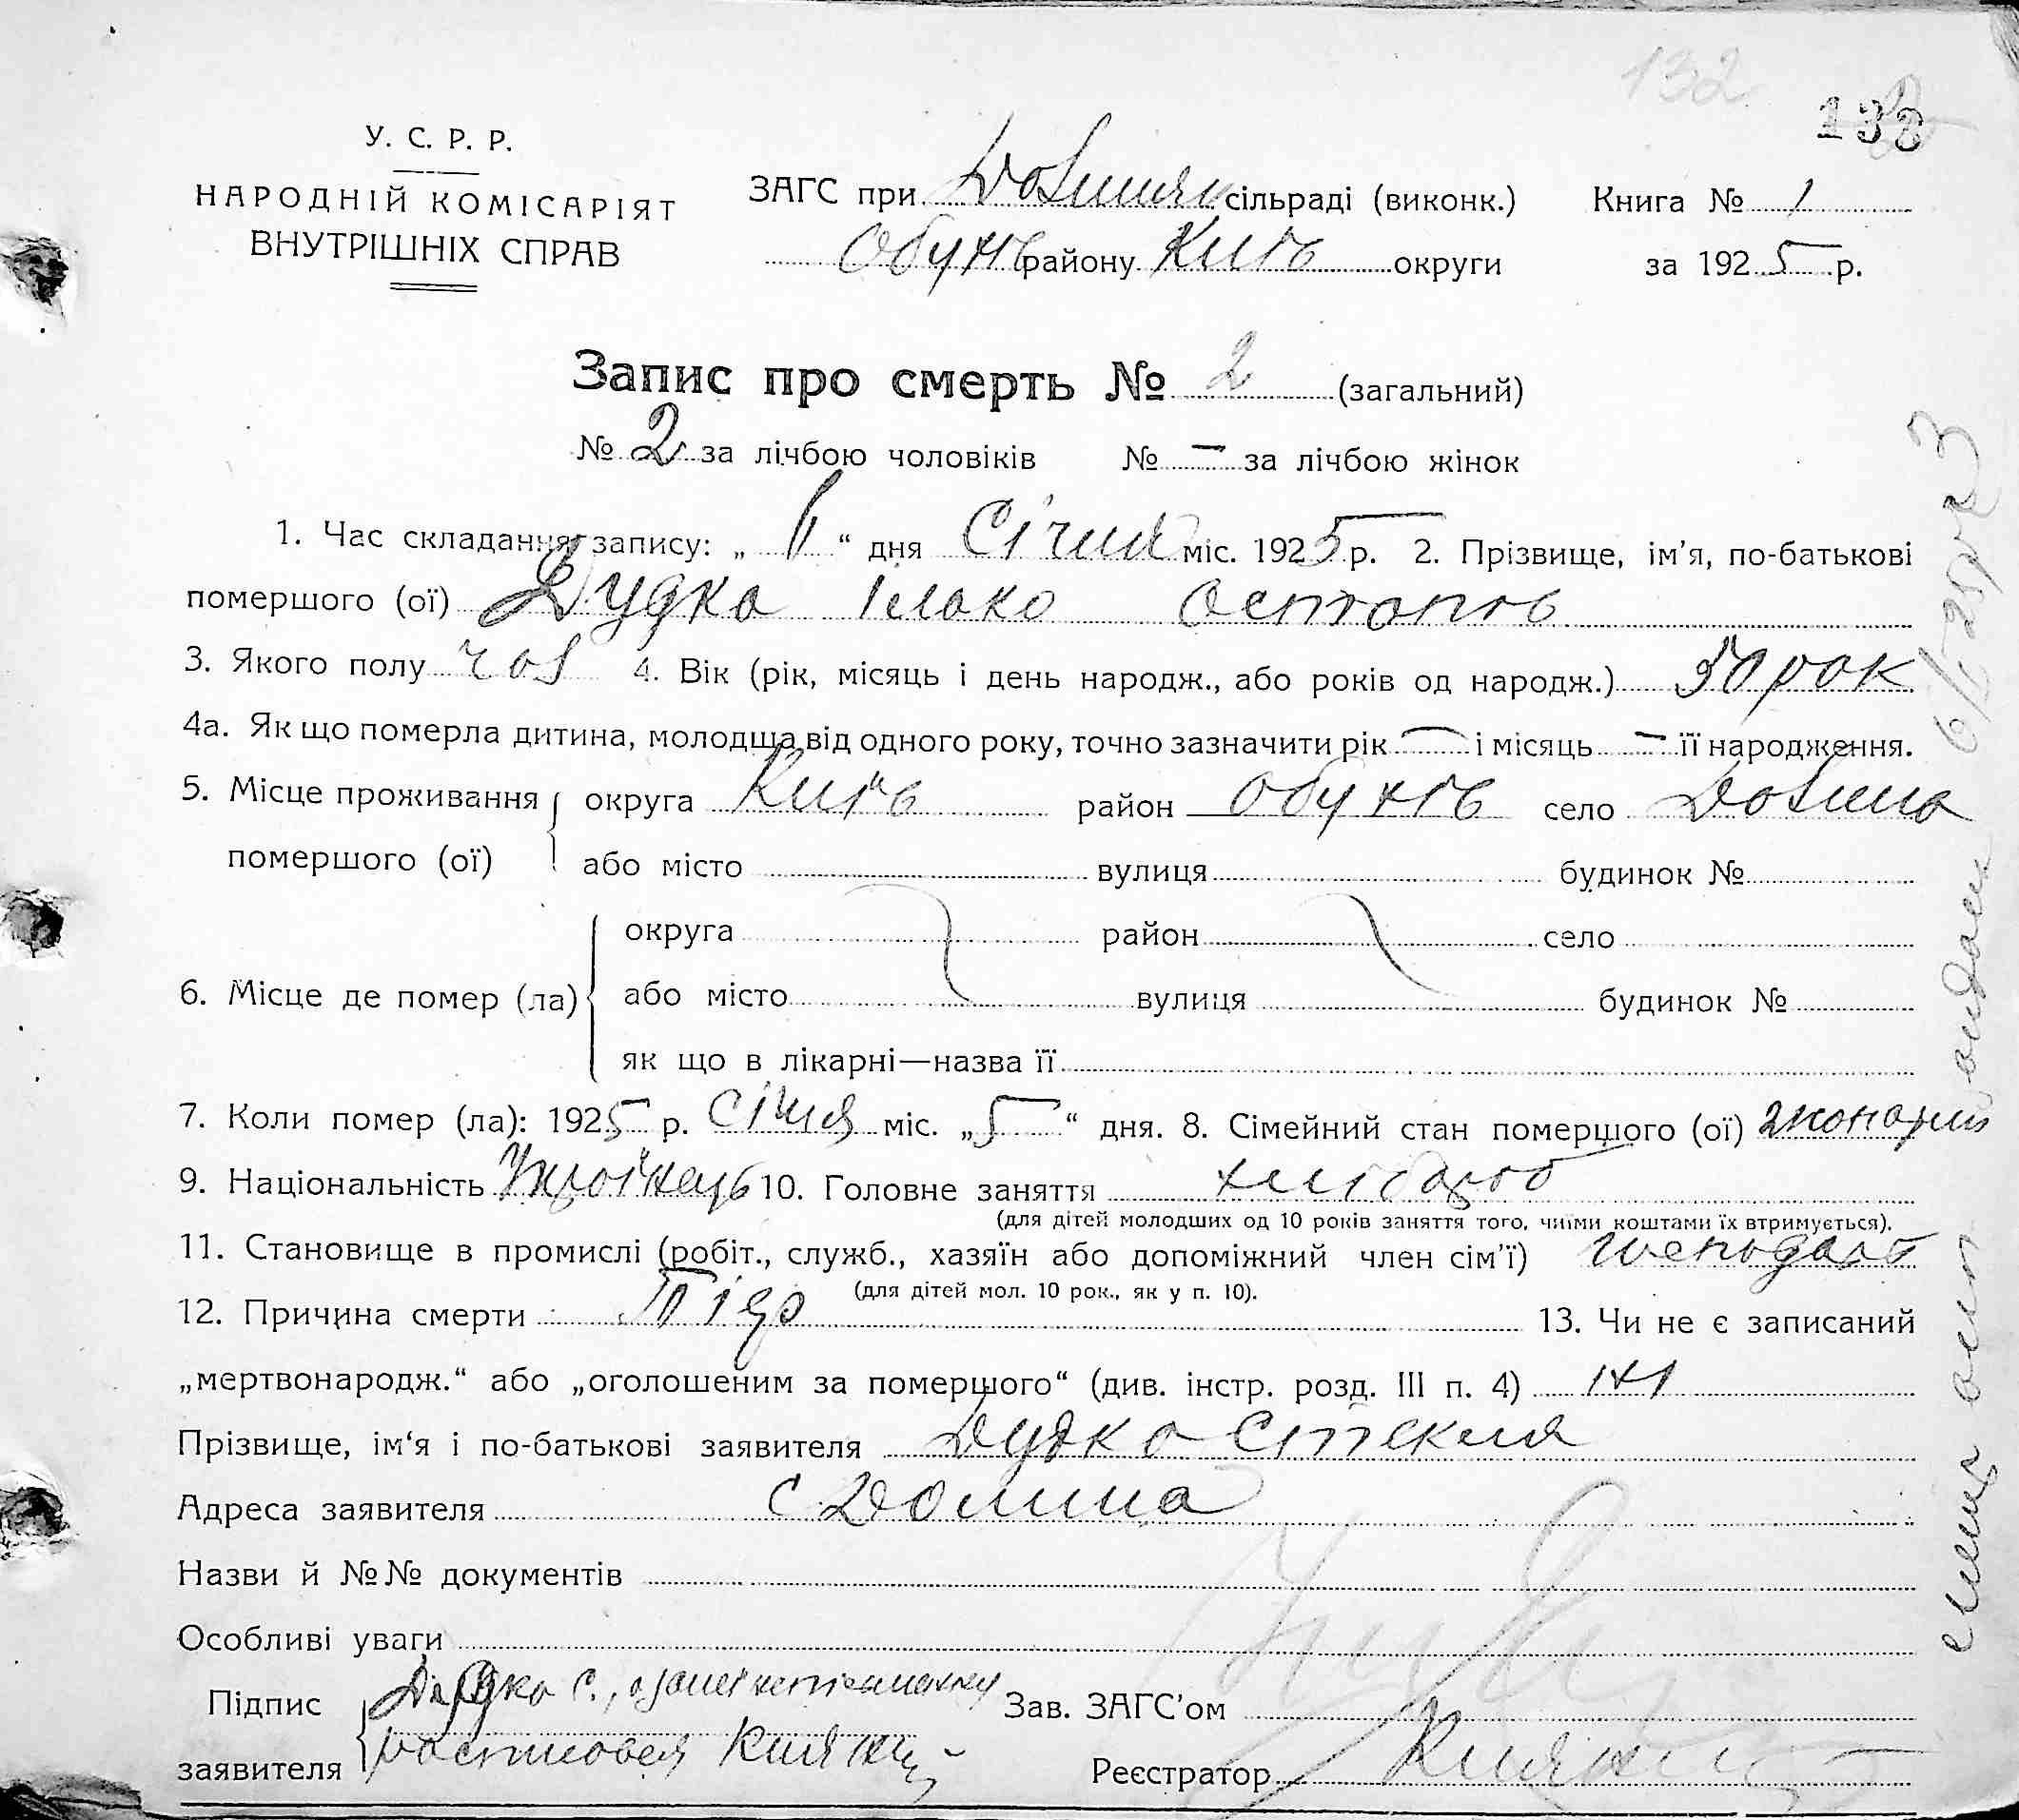 132
133
У. С. Р. Р.
НАРОДНІЙ КОМІСАРІЯТ
ВНУТРІШНІХ СПРАВ
ЗАГС при Долинян сільраді (виконк.)
Обухів району Київ округи
Книга № 1
за 1925 р.
Запис про смерть № 2 (загальний)
№ 2 за лічбою чоловіків № — за лічбою жінок
1. Час складання запису: „ 6 “ дня Січня міс. 1925 р. 2. Прізвище, ім’я, по-батькові
помершого (ої) Дудка Ілько Остапів
3. Якого полу чол 4. Вік (рік, місяць і день народж., або років од народж.) 50 рок
4а. Як що померла дитина, молодша від одного року, точно зазначити рік — і місяць — її народження.
5. Місце проживання округа Київ район Обухів село Долина
помершого (ої) або місто вулиця будинок №
округа район село
6. Місце де помер (ла) або місто вулиця будинок №
як що в лікарні—назва її
7. Коли помер (ла): 1925 р. Січня міс. „ 5 “ дня. 8. Сімейний стан помершого (ої) жонатий
9. Національність Українець 10. Головне заняття хлібороб
(для дітей молодших од 10 років заняття того, чиїми коштами їх втримується).
11. Становище в промислі (робіт., служб., хазяїн або допоміжний член сім’ї) господар
(для дітей мол. 10 рок., як у п. 10).
12. Причина смерти 13. Чи не є записаний
„мертвонародж.“ або „оголошеним за помершого“ (див. інстр. розд. III п. 4) ні
Прізвище, ім‘я і по-батькові заявителя Дудка Степкля
Адреса заявителя с Долина
Назви й №№ документів
Особливі уваги
Підпис Дудка С.,
заявителя
Зав. ЗАГС’ом
Реєстратор